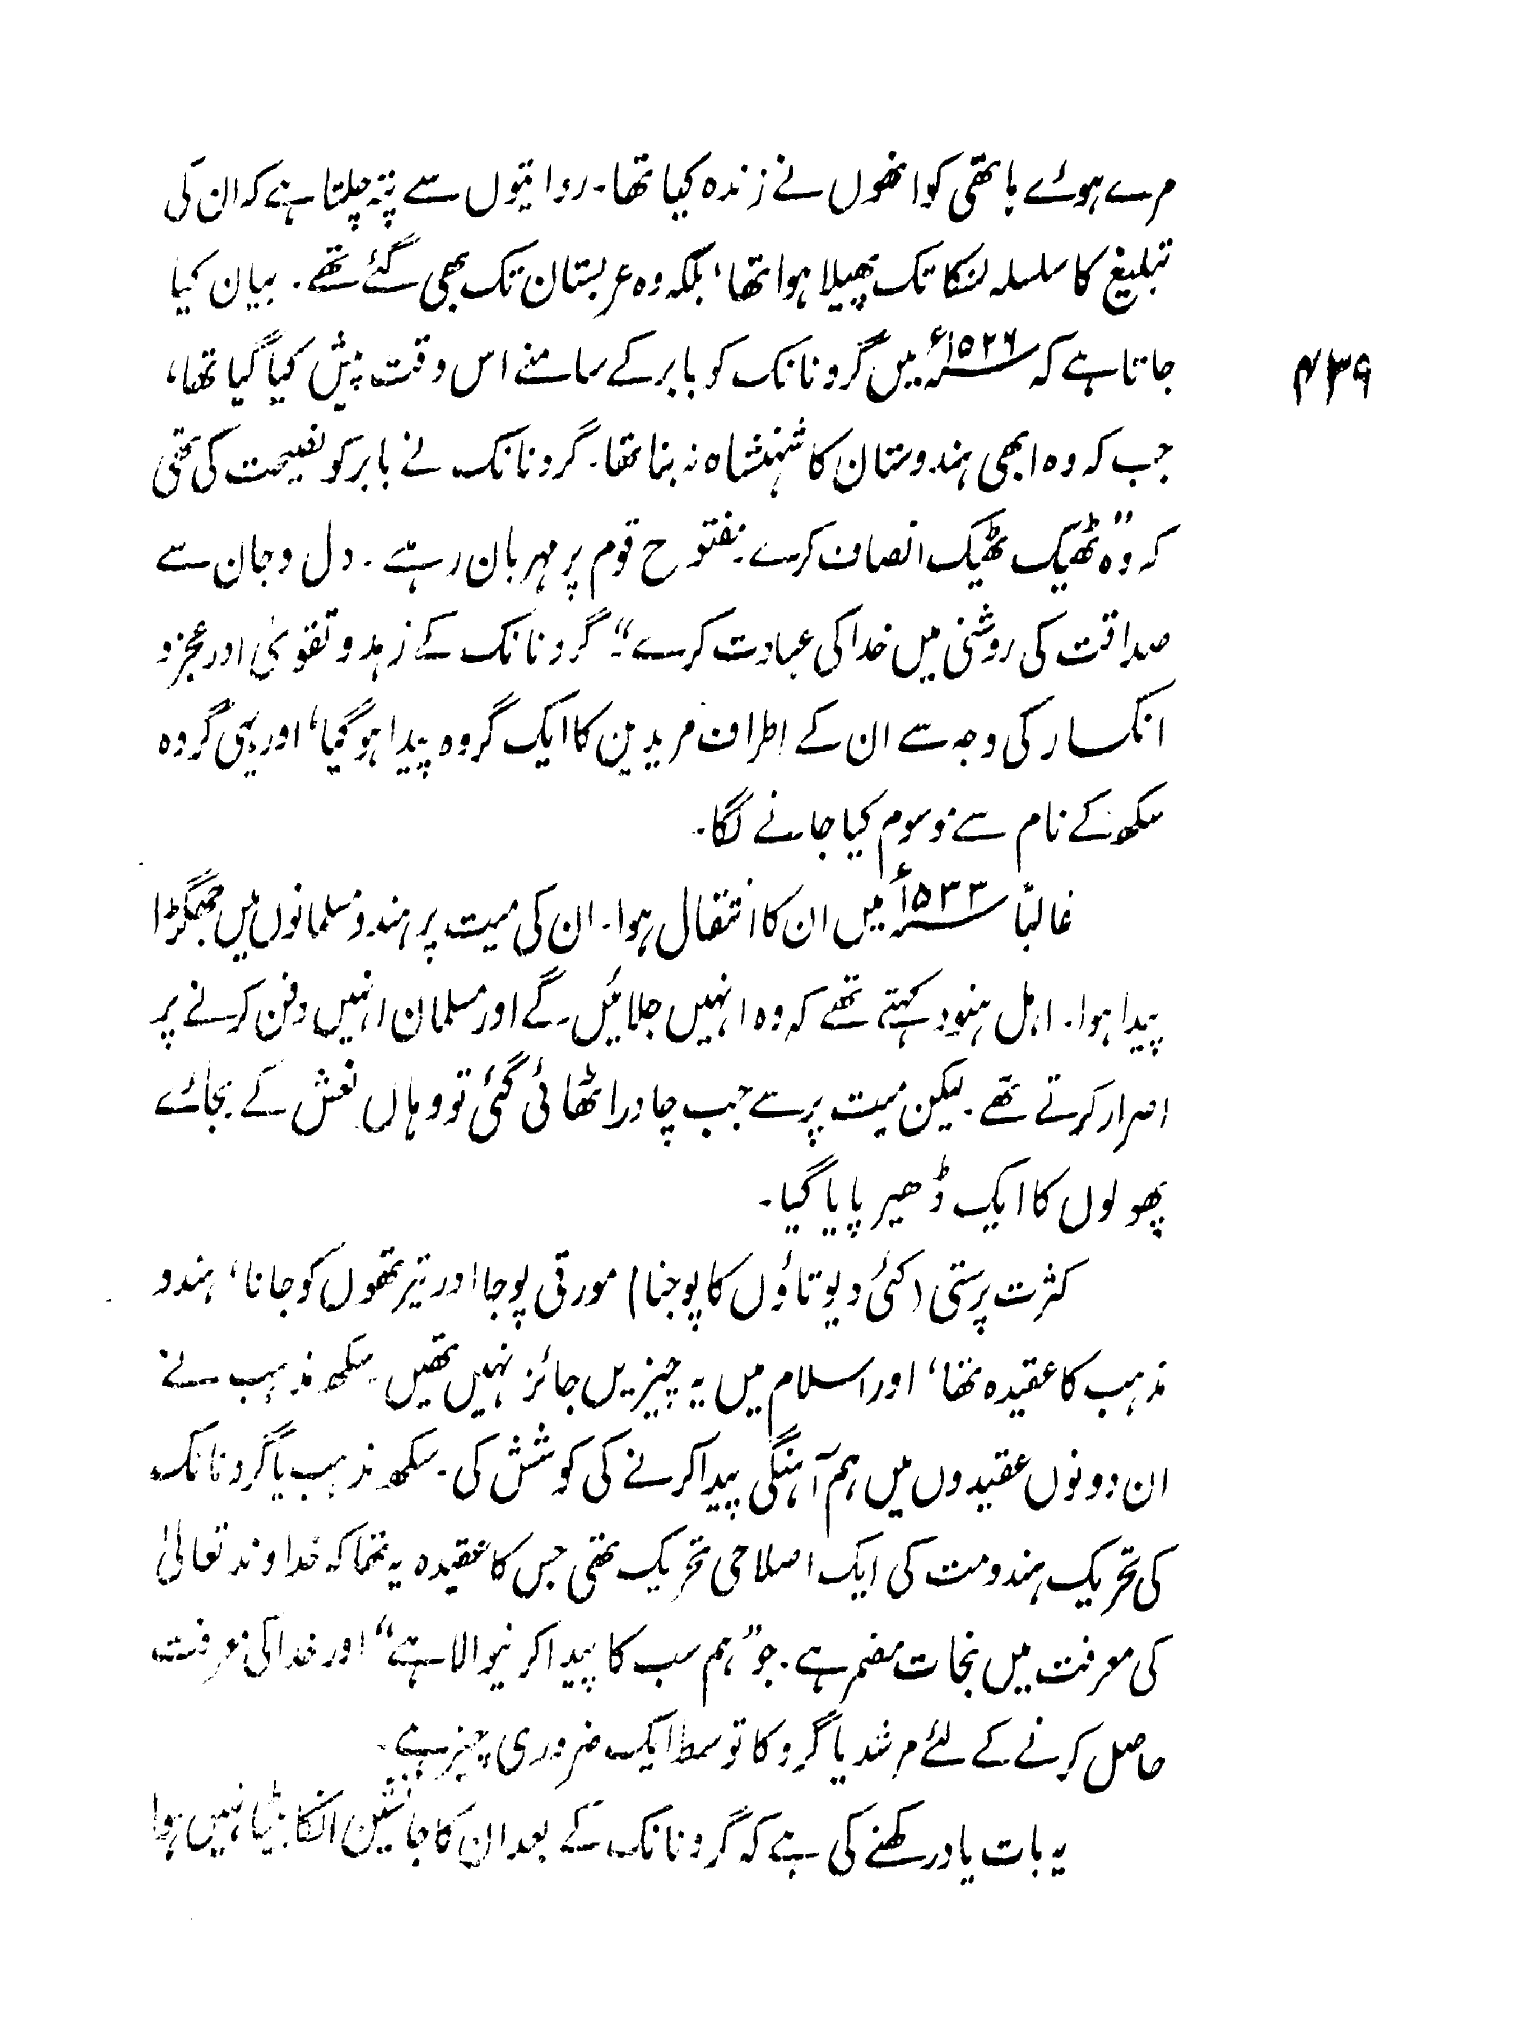 مرے ہوئے ہاتھی کو انھوں نے زندہ کیا تھا۔ روایتوں سے پتہ چلتا ہے کہ ان کی
تبلیغ کا سلسلہ لنکا تک پھیلا ہوا تھا، بلکہ وہ عربستان تک بھی گئے تھے۔ بیان کیا
جاتا ہے کہ ۱۵۲۶ء میں گرو نانک کو بابر کے سامنے اس وقت پیش کیا گیا تھا،
۴۳۹
جب کہ وہ ابھی ہندوستان کا شہنشاہ نہ بنا تھا۔ گرو نانک نے بابر کو نصیحت کی تھی
کہ وہ "ٹھیک ٹھیک انصاف کرے۔ مفتوح قوم پر مہربان رہے۔ دل و جان سے
صداقت کی روشنی میں خدا کی عبادت کرے"۔ گرو نانک کے زہد و تقویٰ اور عجز و
انکسار کی وجہ سے ان کے اطراف مریدین کا ایک گروہ پیدا ہوگیا، اور یہی گروہ
سکھ کے نام سے موسوم کیا جانے لگا۔
غالباً ۱۵۳۳ء میں ان کا انتقال ہوا۔ ان کی میت پر ہندو مسلمانوں میں جھگڑا
پیدا ہوا۔ اہل ہنود کہتے تھے کہ وہ انہیں جلائیں گے اور مسلمان انہیں دفن کرنے پر
اصرار کرتے تھے۔ لیکن میت پر سے جب چادر اٹھائی گئی تو وہاں نعش کے بجائے
پھولوں کا ایک ڈھیر پایا گیا۔
کثرت پرستی (کئی دیوتاؤں کا پوجنا) مورتی پوجا اور تیرتھوں کو جانا، ہندو
مذہب کا عقیدہ تھا، اور اسلام میں یہ چیزیں جائز نہیں تھیں۔ سکھ مذہب نے
ان دونوں عقیدوں میں ہم آہنگی پیدا کرنے کی کوشش کی۔ سکھ مذہب یا گرو نانک
کی تحریک ہندومت کی ایک اصلاحی تحریک تھی جس کا عقیدہ یہ تھا کہ خداوند تعالیٰ
کی معرفت میں نجات مضمر ہے۔ جو "ہم سب کا پیدا کرنیوالا ہے" اور خدا کی معرفت
حاصل کرنے کے لئے مرشد یا گرو کا توسط ایک ضروری چیز ہے۔
یہ بات یاد رکھنے کی ہے کہ گرو نانک کے بعد ان کا جانشین انکا بیٹا نہیں ہوا